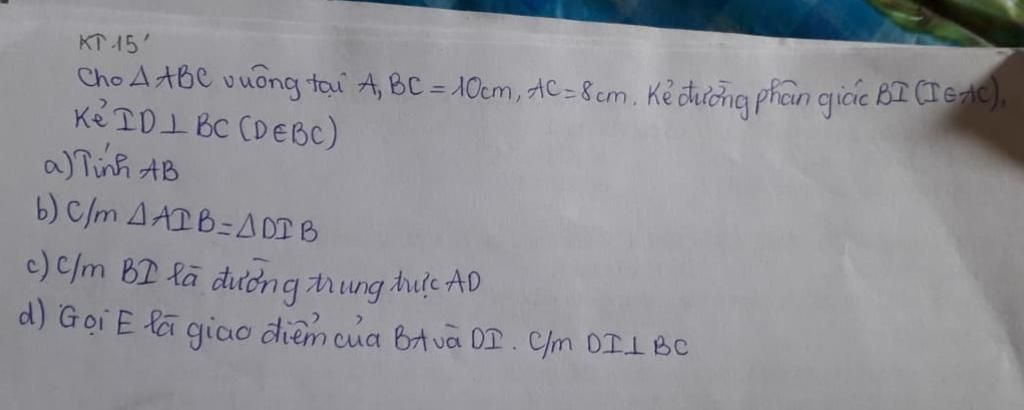 KT 15'
Cho ΔABC vuông tại A, BC = 10cm, AC = 8cm. Kẻ đường phân giác BI (I∈AC),
Kẻ ID⊥BC (D∈BC)
a) Tính AB
b) C/m ΔAIB = ΔDIB
c) C/m BI là đường trung trực AD
d) Gọi E là giao điểm của BA và DI. C/m DI⊥BC